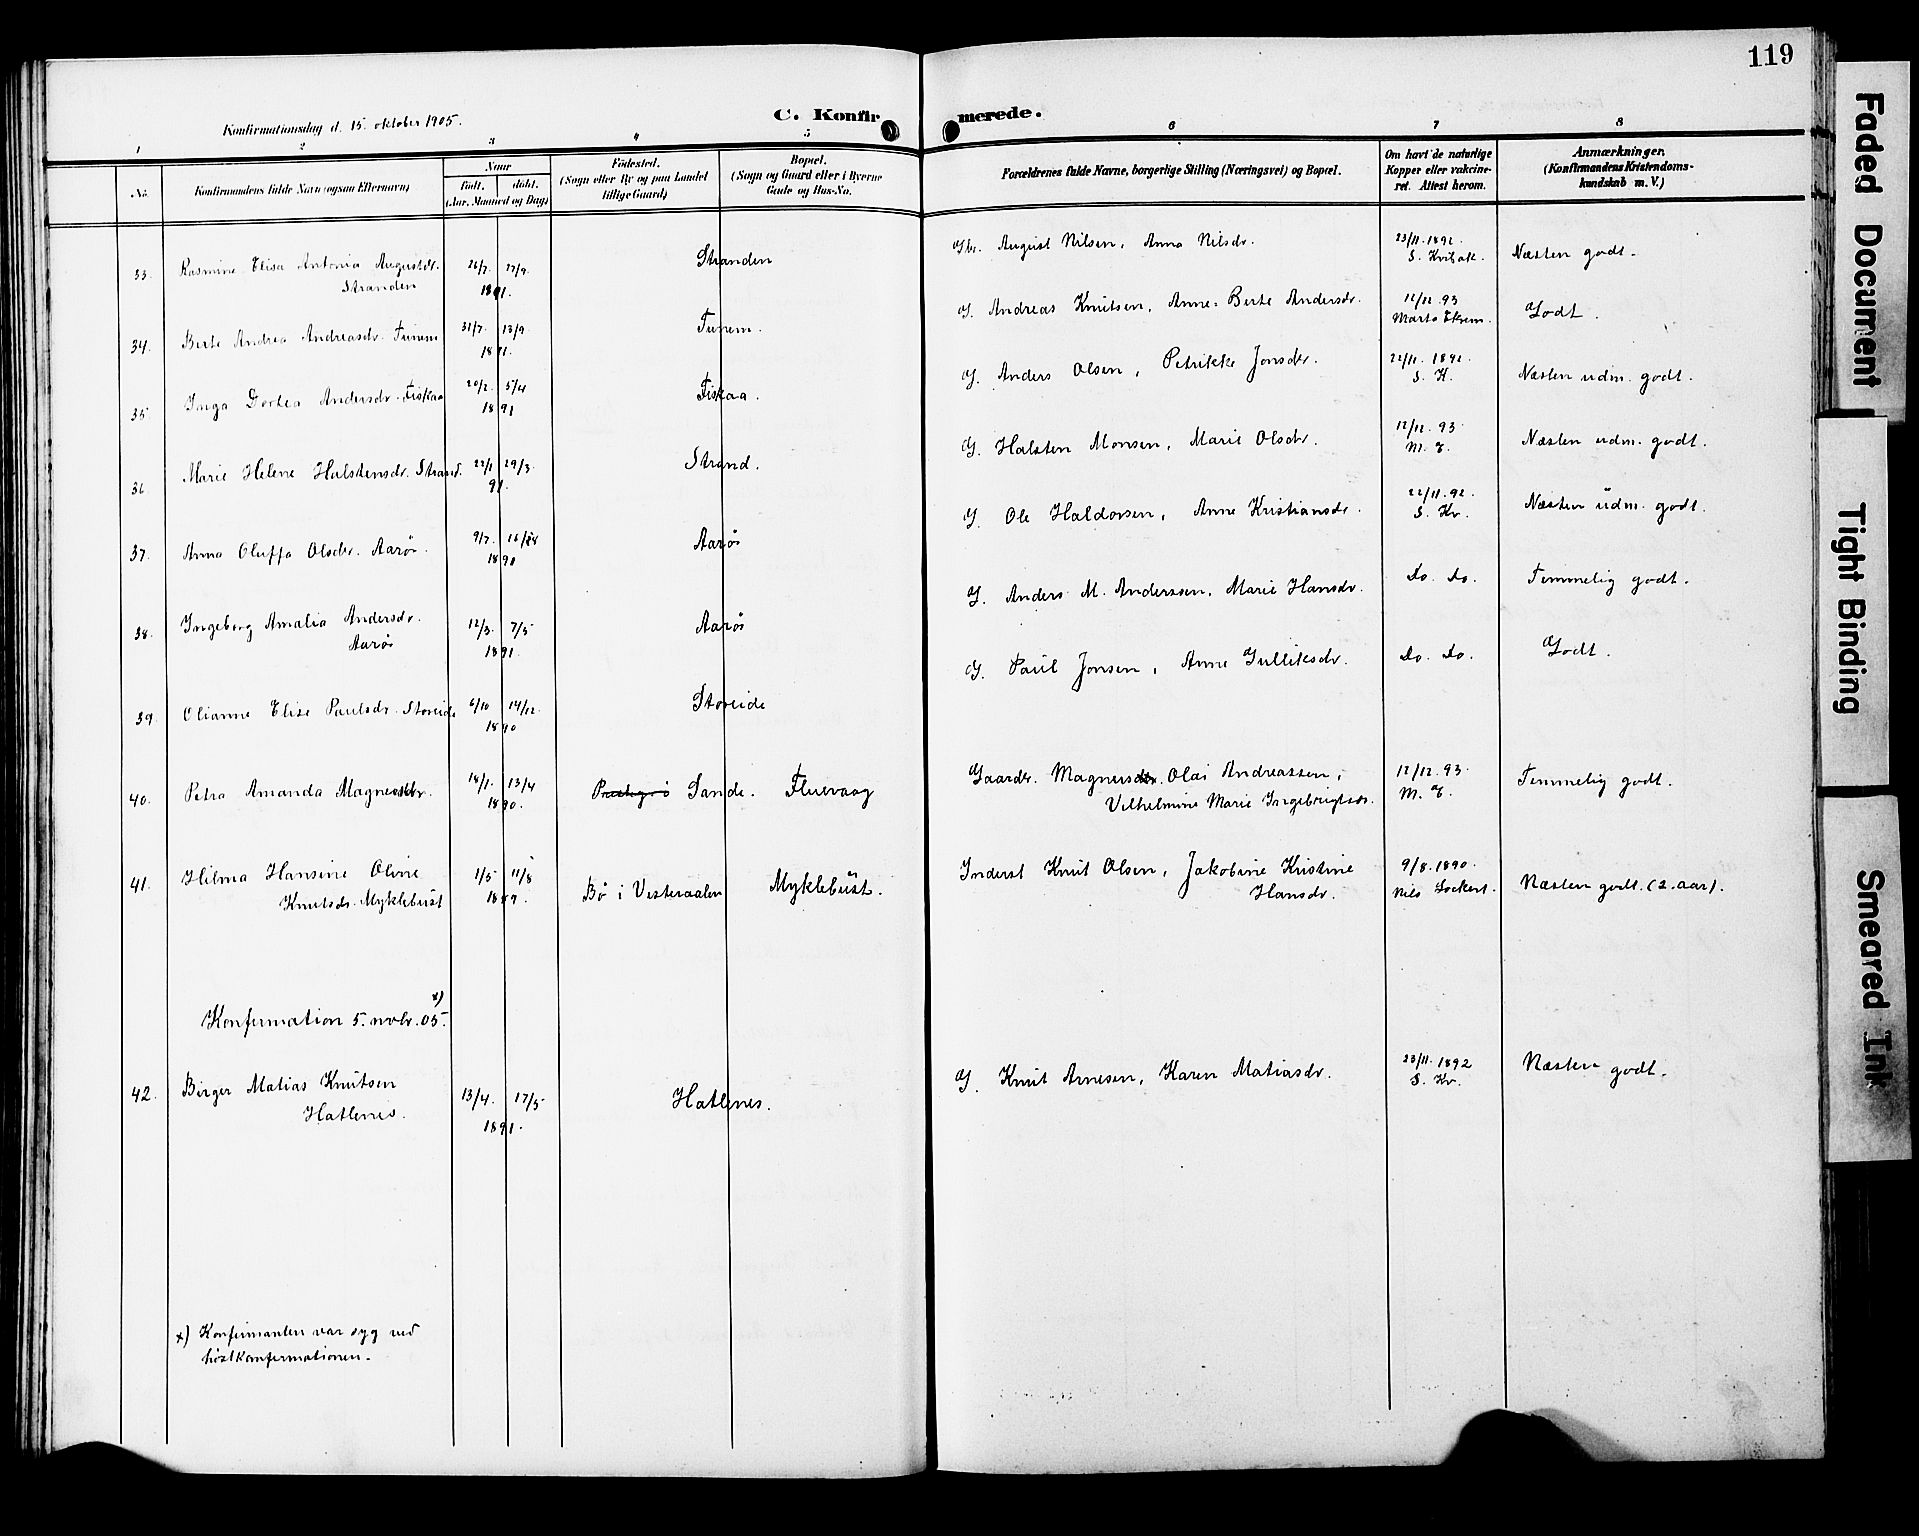 119
Konfirmationsdag d. 15. oktober 1905.
C. Konfirmerede.
1 2 3 4 5 6 7 8
No.
Konfirmandens fulde Navn (ogsaa Efternavn)
Naar
født. døbt.
(Aar, Maaned og Dag)
Födested.
(Sogn eller By og paa Landet
tillige Gaard)
Bopæl.
(Sogn og Gaard eller i Byerne
Gade og Hus-No.
Forældrenes fulde Navne, borgerlige Stilling (Næringsvei) og Bopæl.
Om havt de naturlige
Kopper eller vakcine-
ret. Attest herom.
Anmærkninger.
(Konfirmandens Kristendoms-
kundskab m. V.)
33. Rasmine Elisa Antonia Augustdr. 26/7. 27/9. Stranden August Nilsen, Anna Nilsdr. 23/11.1892. Næsten godt.
Stranden 1891. S. Kvibak.
34. Berte Andrea Andreasdr. Furem 31/7. 13/9. Furem. G. Andreas Knutsen, Anne-Berte Andersdr. 12/12.93 Godt.
1891. Marta Ekrem.
35. Inga Dortea Andersdr. Fiskaa 20/2. 5/4 Fiskaa. G. Anders Olsen, Petrikke Jonsdr. 22/11.1892. Næsten udm. godt.
1891 S. K.
36. Marie Helene Halstensdr. Strand. 22/1 29/3. Strand. G. Halsten Monsen, Marie Olsdr. 12/12.93 Næsten udm. godt.
91. M. E.
37. Anna Oluffa Olsdr. Aarøs. 9/7. Aarøs G. Ole Haldorsen, Anne Kristiansdr. 22/11.92. Næsten udm. godt.
1890 S. Kv.
38. Ingeborg Amalia Andersdr. 12/3. 7/5 Aarøs G. Anders M. Anderssen, Marie Hansdr. do. do. Temmelig godt.
Aarøs 1891.
39. Olianne Elise Paulsdr. Storeide 6/10 14/12. Storeide G. Paul Jonsen, Anne Gulliksdr. do. do. Godt.
1890
40. Petra Amanda Magnesdr. 14/1. 13/4 Sande. Fluevaag Gaardbr. Magnus Olai Andreassen, 12/12.93 Temmelig godt.
1890. Vilhelmine Marie Ingebrigtsdr. M. E.
41. Hilma Hansine Olvine 1/5 11/8 Bø i Vesteraalen Myklebust. Inderst Knut Olsen, Jakobine Kristine 9/8.1890. Næsten godt. (2. aar).
Knutsdr. Myklebust 1889. Hansdr. Nils Lockert.
Konfirmation 5. novbr. 05. x)
42. Birger Matias Knutsen 13/4. 17/5 Hatlenes. G. Knut Arnesen, Karen Matiasdr. 23/11.1892 Næsten godt.
Hatlenes. 1891. S. Kv.
x) Konfirmanten var syg ved
høstkonfirmationen.
Faded Document
Tight Binding
Smeared Ink